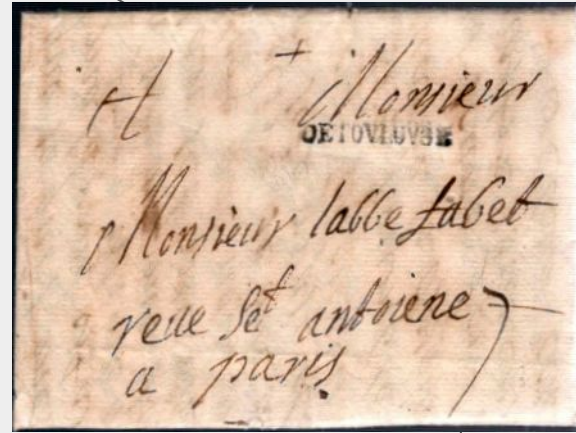 A Monsieur
DE TOVLOVSE
Monsieur labbe
reue St antoiene
a paris